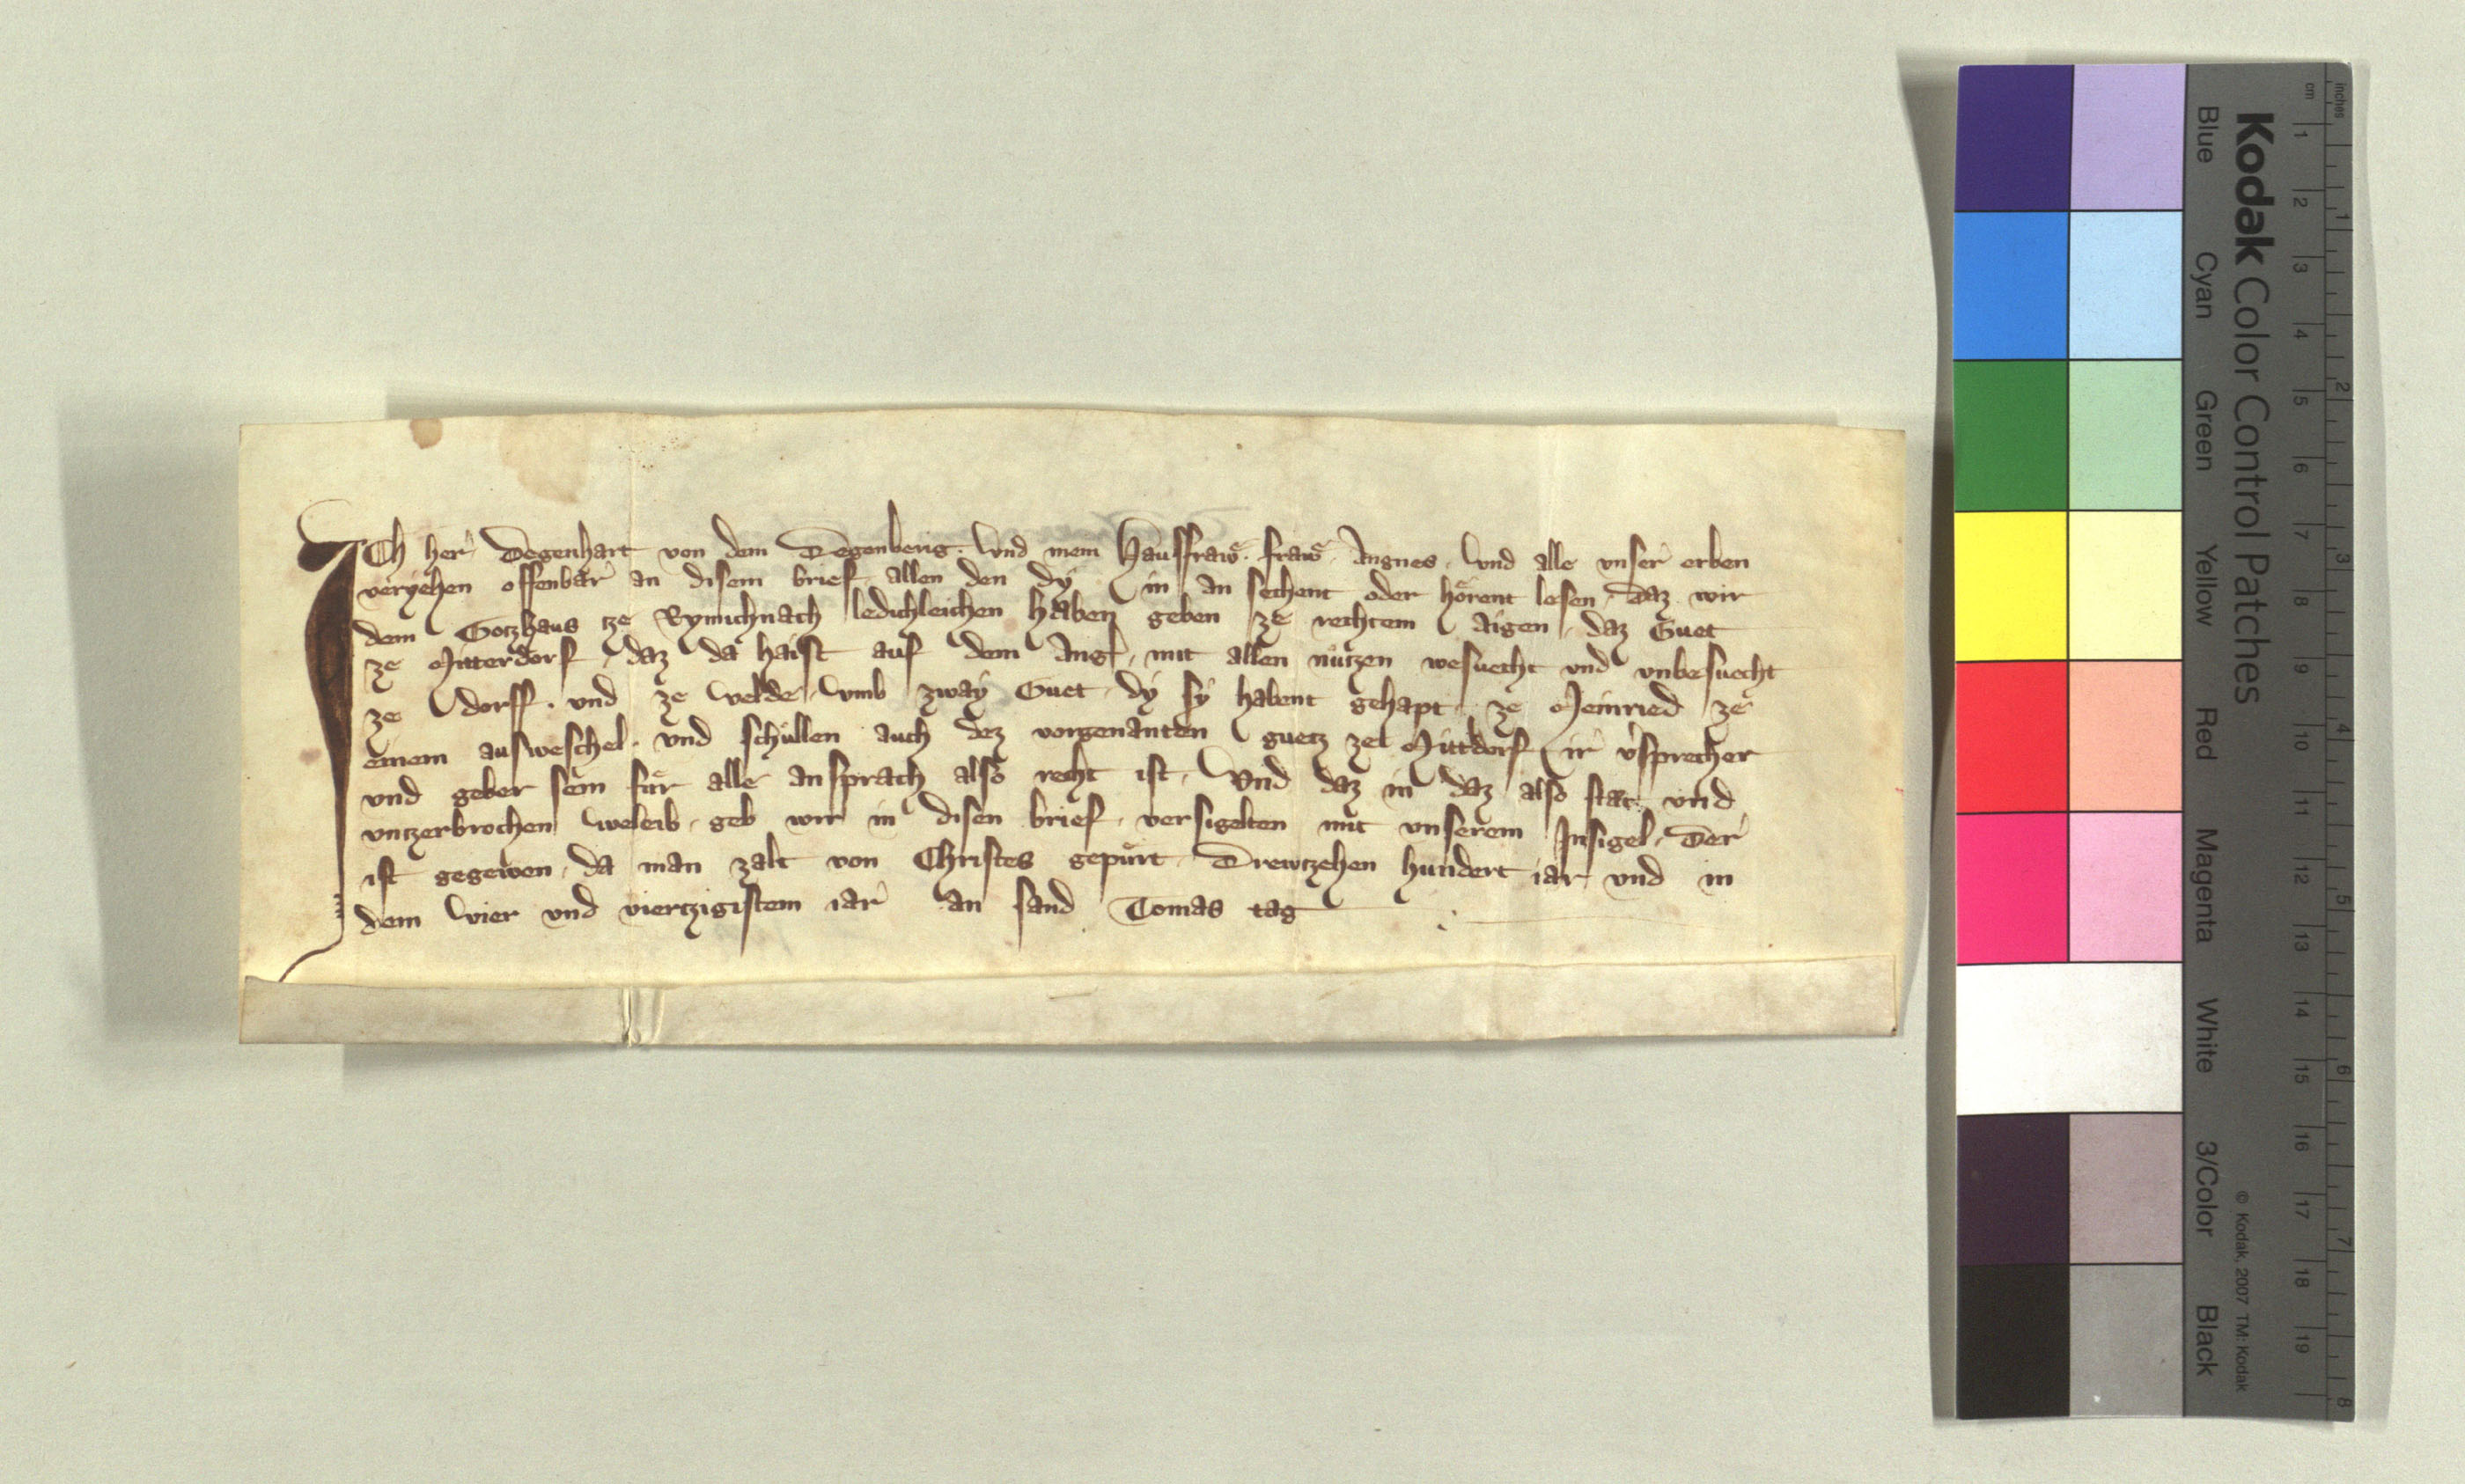 Ich her Degenhart von dem Degenberg. vnd mein Hausfrawͤ. frawͤ. Angnes. vnd alle vnser erben
veryehen offenbar an disem brief. allen den dy in an sechent oder hoͤrent lesen. Daz wir
dem Gotzhaus tze Rymichnach ledichleichen haben geben ze rechtem aigen. daz Guet
ze Mitterdorf. daz da haist auf dem Angͤr. mit allen nuͤtzen wesuecht vnd vnbesuecht
ze dorff. vnd ze velde. vmb zway Guet. dy sy habent gehapt. ze Meinried ze
einem ausweschel. vnd schuͤllen auch dez vorgenanten guetz ze Mittdorf ir v'sprecher
vnd geber sein fuͤr alle ansprach also recht ist. Vnd daz in daz also staͤt vnd
vntzerbrochen weleib. geb wir in disen brief. versigelten mit vnserem Insigel. Der
ist gegewen. da man zalt von Christes gepuͤrt. Drewtzehen hundert iar vnd in
dem vier vnd viertzigistem iar an sand Tomas tag
Kodak Color Control Patches
Blue Cyan Green Yellow Red Magenta White 3/Color Black
© Kodak, 2007 TM: Kodak
inches 1 2 3 4 5 6 7 8
cm 1 2 3 4 5 6 7 8 9 10 11 12 13 14 15 16 17 18 19